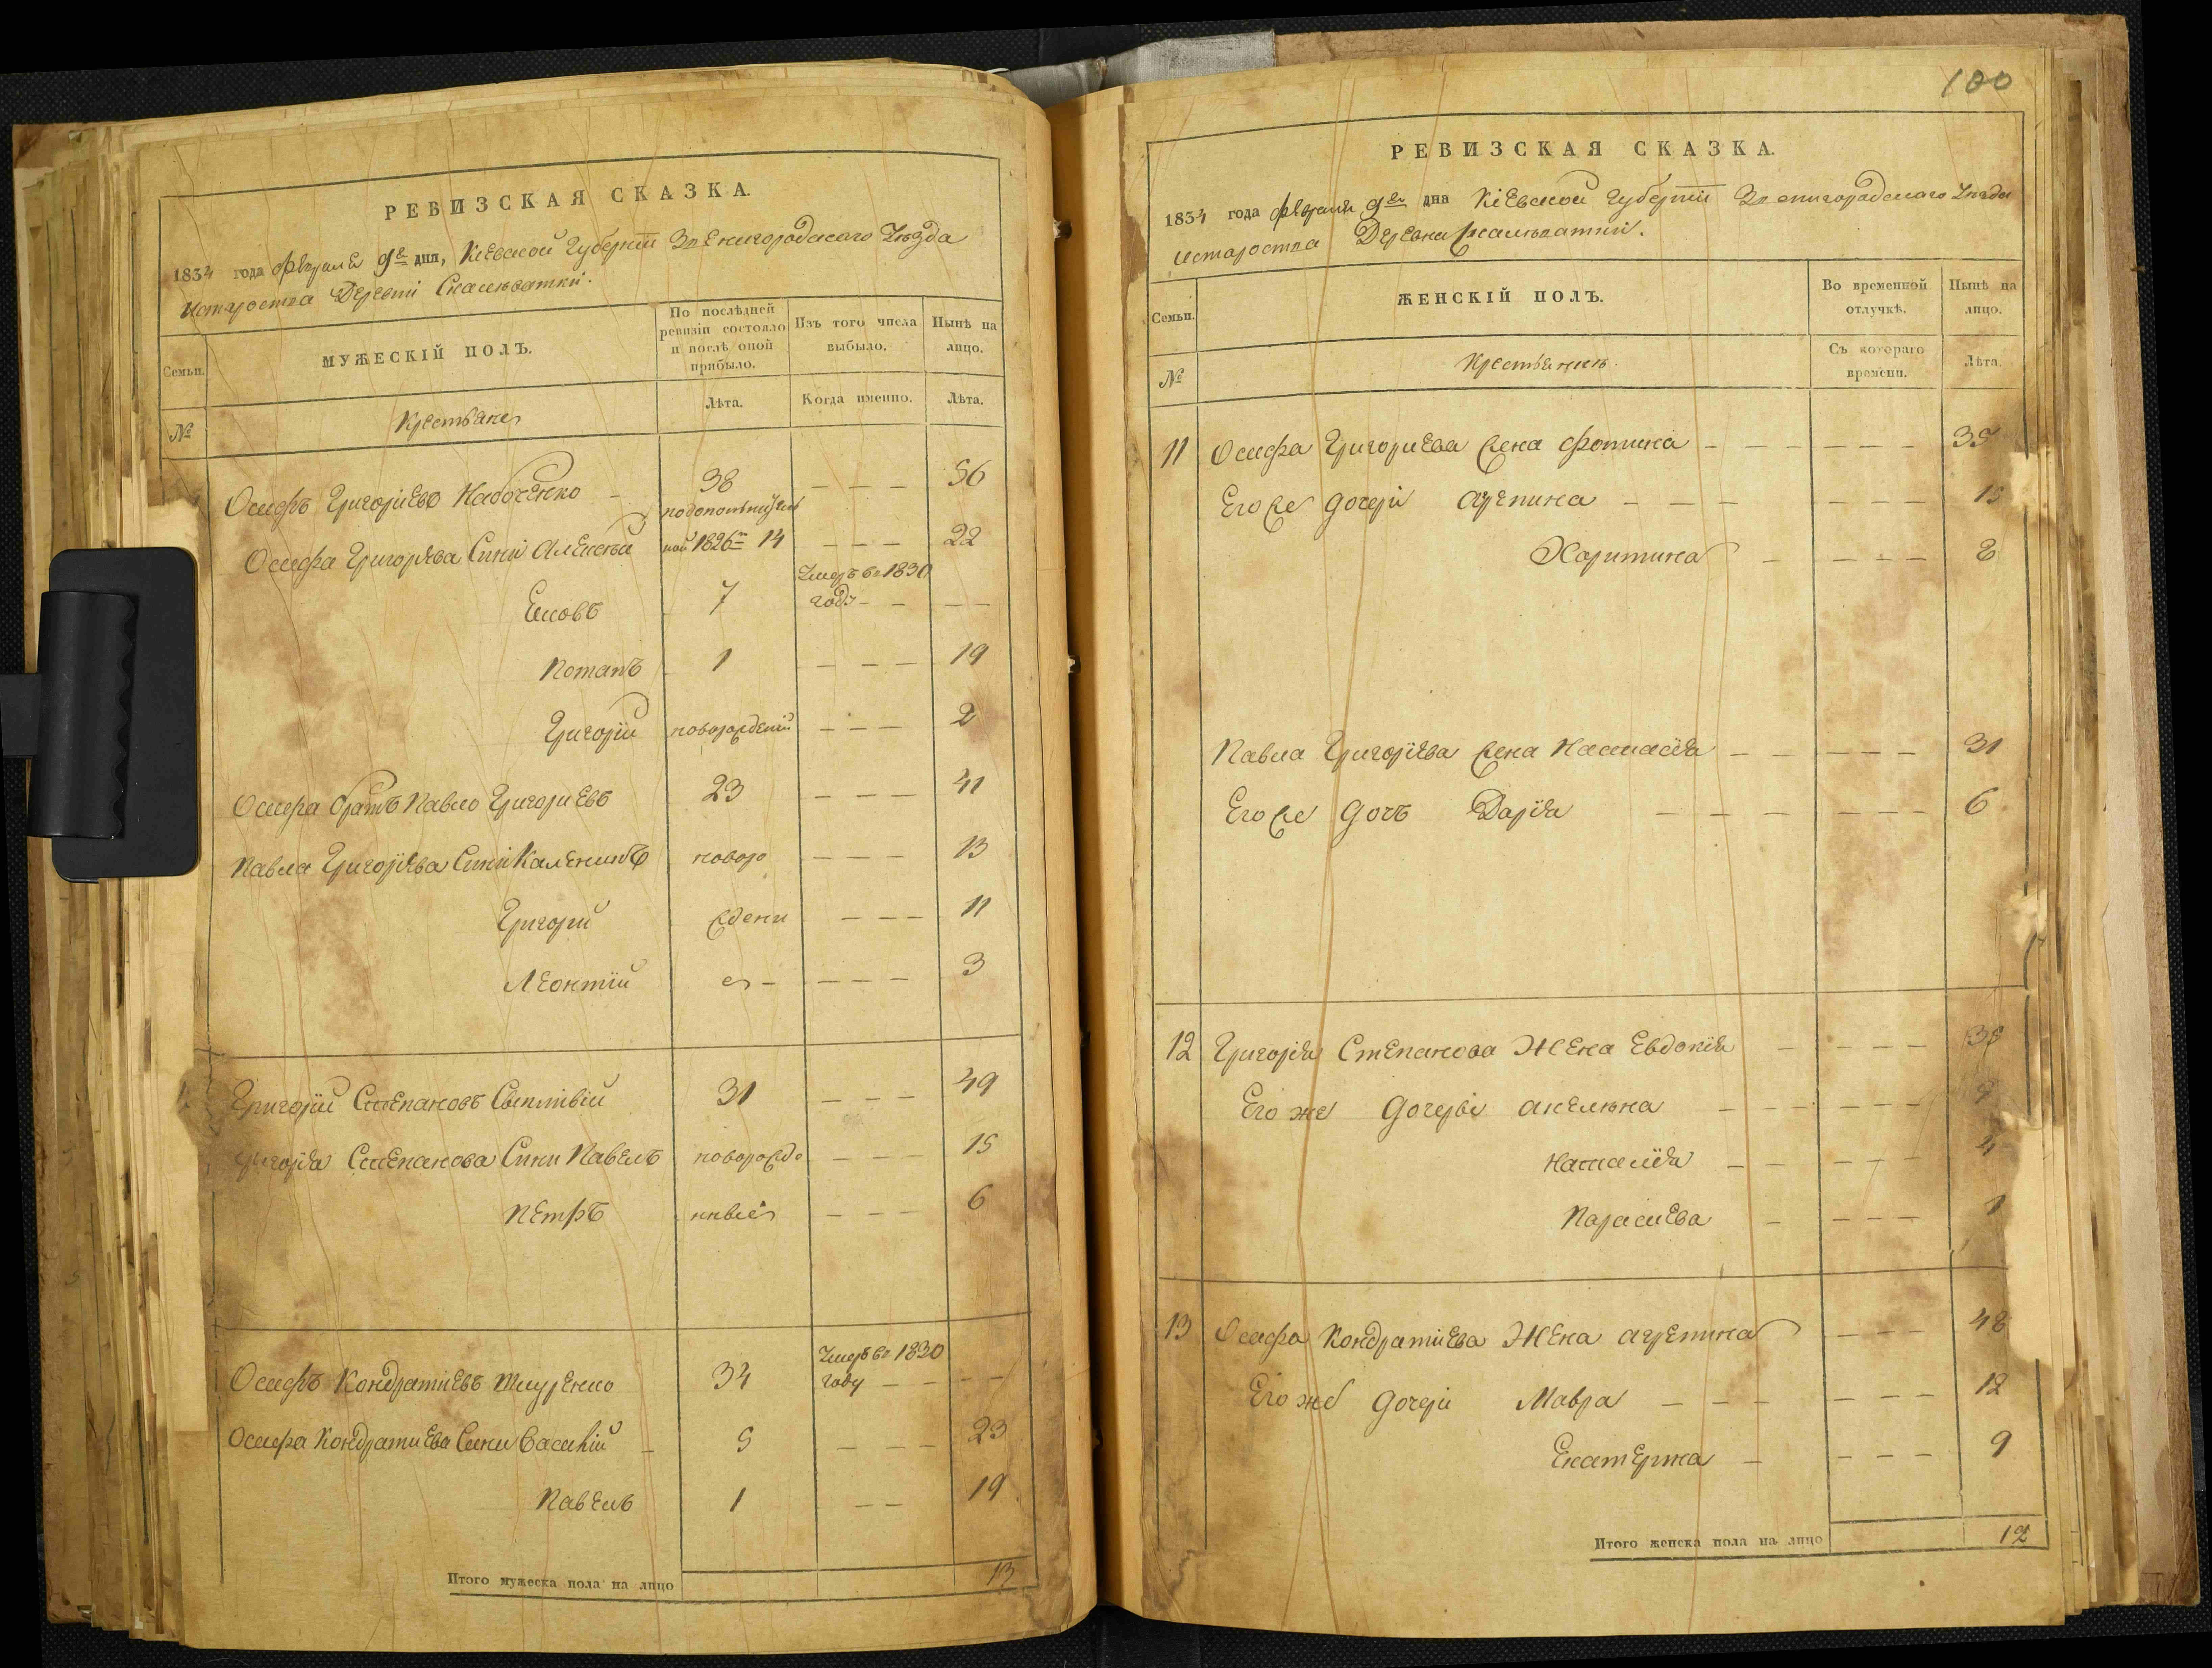 РЕВИЗСКАЯ СКАЗКА.
1834 года февраля 9го дня, Кіевской Губерніи Звенигородскаго Уѣзда
Староства Деревни
МУЖЕСКІЙ ПОЛЪ.
По послѣдней ревизіи состояло и послѣ оной прибыло.
Изъ того числа выбыло.
Нынѣ на лицо.
Семьи.
№
Крестьяне
Лѣта.
Когда именно.
Лѣта.
Осифъ Григоріевъ 38 – – – 56
Осифа Григорьева Сини Алексѣй 1826го 14 – – – 22
Іековъ 7 Умеръ въ 1830 году – – – –
Потапъ 1 – – – 19
Григорій новорожденій – – – 2
Осифа братъ Павло Григориевъ 23 – – – 41
Павла Григоріева Сини Каленикъ новоро – – – 13
Григорій ждени – – – 11
Леонтій е – – – – 3
Григорій Степановъ 31 – – – 49
Григорія Степанова Сини Павелъ новорожде – – – 15
Петръ – – – 6
Осифъ Кондратіевъ 34 Умеръ въ 1830 году – – – –
Осифа Кондратиева Сини Василій – 5 – – – 23
Павелъ 1 – – 19
Итого мужеска пола на лицо 13
100
РЕВИЗСКАЯ СКАЗКА.
1834 года февраля 9го дня Кіевской Губерніи Звенигородскаго Уѣзда
Староства Деревни
Семьи.
ЖЕНСКІЙ ПОЛЪ.
Во временной отлучкѣ.
Нынѣ на лицо.
№
Крестьянки
Съ котораго времени.
Лѣта.
11 Осифа Григориева жена Фотина – – – – – – 35
Его же дочери Агрепина – – – – – – 15
Харитина – – – – – 8
Павла Григоріева жена Настасія – – – – – 31
Его же дочъ Дарія – – – – – – 6
12 Григорія Степанова Жена Евдокія – – – – – 38
Его же дочери – – – – –
Наталія – – – – – 4
Параскева – – – – 1
13 Осифа Кондратиева Жена Агрепина – – – 48
Его же дочери Мавра – – – – – – 12
Екатерина – – – – 9
Итого женска пола на лицо 12